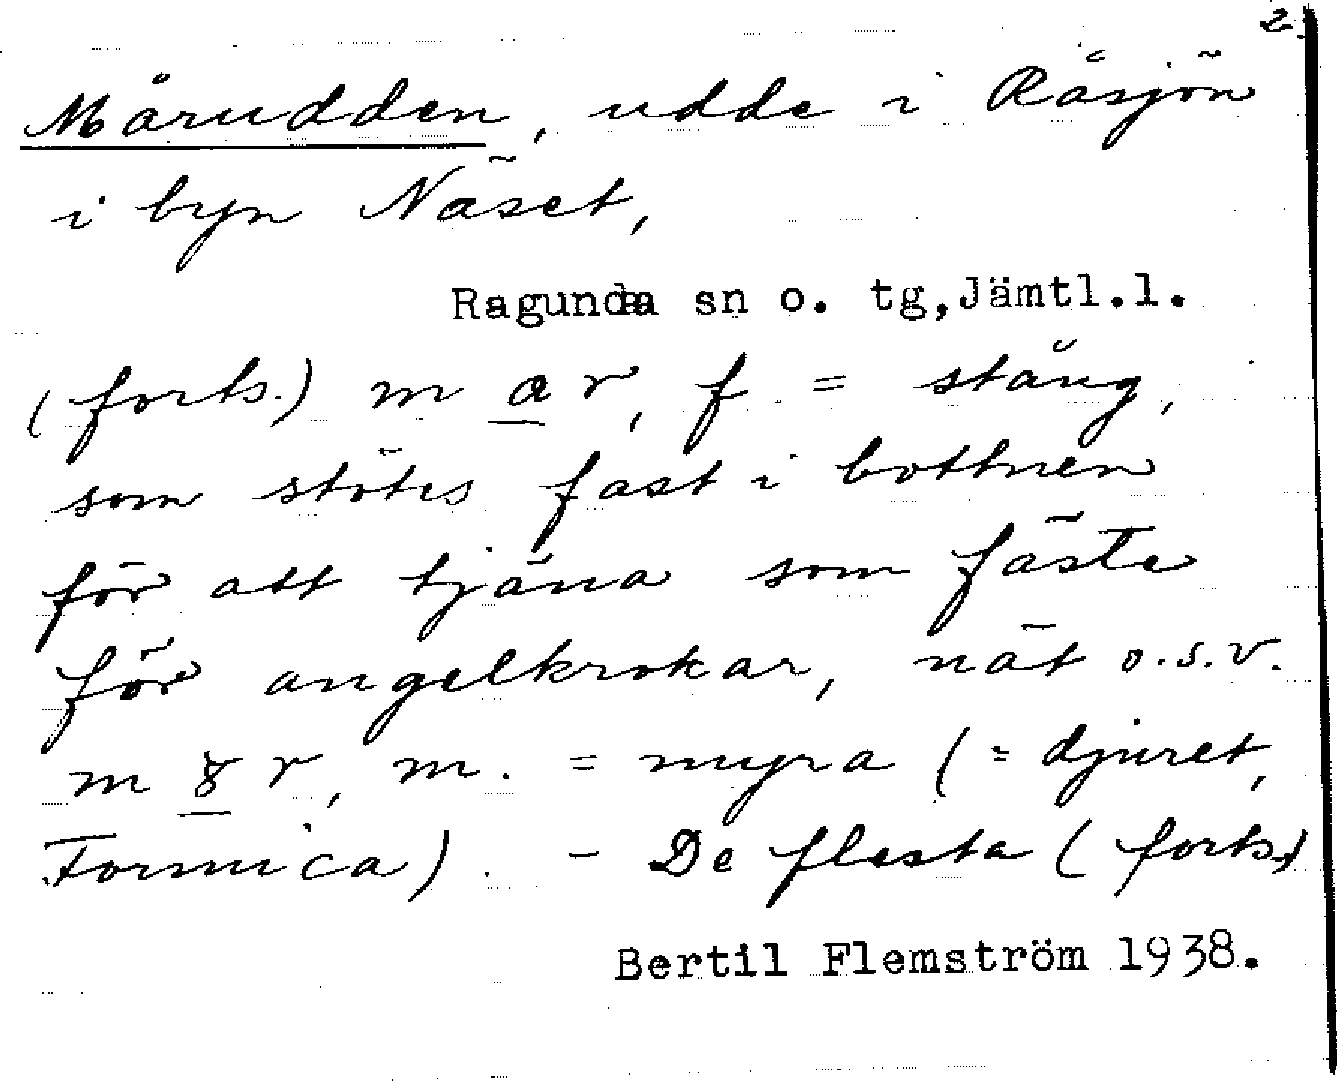 2.
Mårudden, udde i Råsjön
i byn Näset,
Ragunda sn o. tg, Jämtl.l.
(forts.) m a r, f. = stång,
som stötes fast i bottnen
för att tjäna som fäste
för angelkrokar, nät o.s.v.
m r, m. = myra (= djuret,
Formica). - De flesta (forts.)
Bertil Flemström 1938.